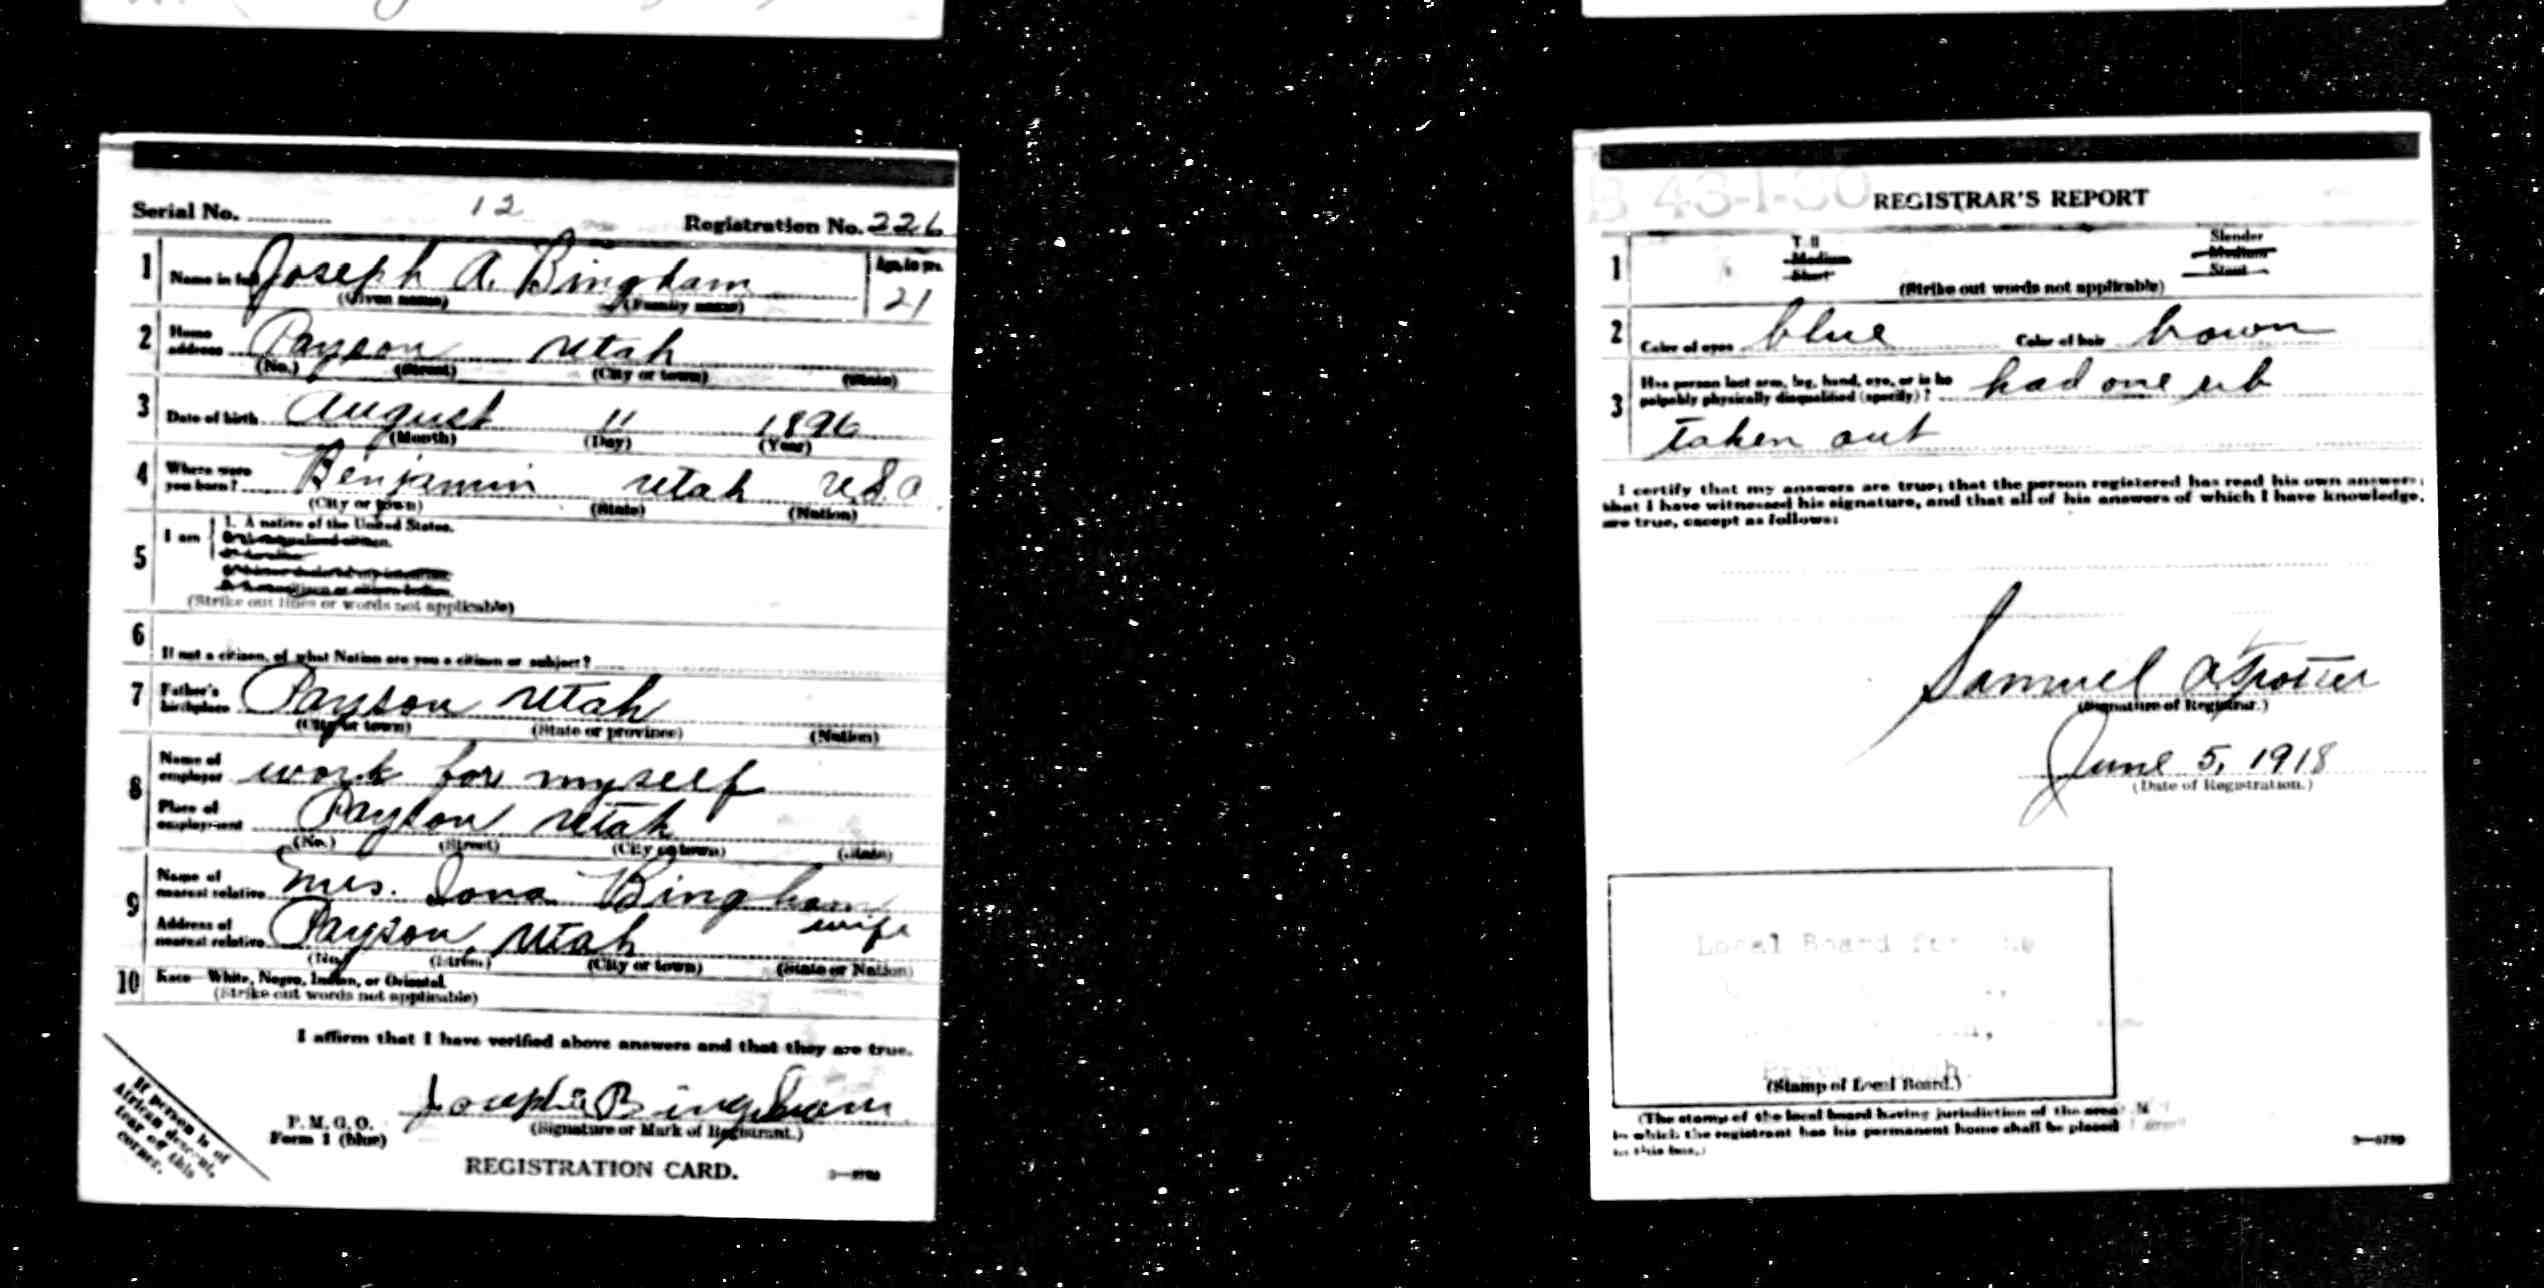 Serial No. 12 Registration No. 226
1 Name in full Joseph A. Bingham Age, in yrs. 21
(Given name) (Family name)
2 Home address Payson Utah
(No.) (Street) (City or town) (State)
3 Date of birth August 11 1896
(Month) (Day) (Year)
4 Where were you born? Benjamin Utah U.S.A
(City or town) (State) (Nation)
5 I am 1. A native of the United States.
(Strike out lines or words not applicable)
6 If not a citizen, of what Nation are you a citizen or subject?
7 Father's birthplace Payson Utah
(City or town) (State or province) (Nation)
8 Name of employer work for myself
Place of employment Payson Utah
(No.) (Street) (City or town) (State)
9 Name of nearest relative Mrs. Iona Bingham
wife
Address of nearest relative Payson, Utah
(No.) (Street) (City or town) (State or Nation)
10 Race—White, Negro, Indian, or Oriental.
(Strike out words not applicable)
I affirm that I have verified above answers and that they are true.
Joseph A Bingham
(Signature or Mark of Registrant.)
P. M. G. O.
Form 1 (blue)
REGISTRATION CARD.
If person is of
African descent,
tear off this
corner.
REGISTRAR'S REPORT
1 Tall Slender
Medium Medium
Short Stout
(Strike out words not applicable)
2 Color of eyes blue Color of hair brown
3 Has person lost arm, leg, hand, eye, or is he
palpably physically disqualified (specify)? had one rib
taken out
I certify that my answers are true; that the person registered has read his own answers;
that I have witnessed his signature, and that all of his answers of which I have knowledge,
are true, except as follows:
Samuel A Trotter
(Signature of Registrar.)
June 5, 1918
(Date of Registration.)
Local Board for
(Stamp of Local Board.)
(The stamp of the local board having jurisdiction of the area
in which the registrant has his permanent home shall be placed
in this box.)